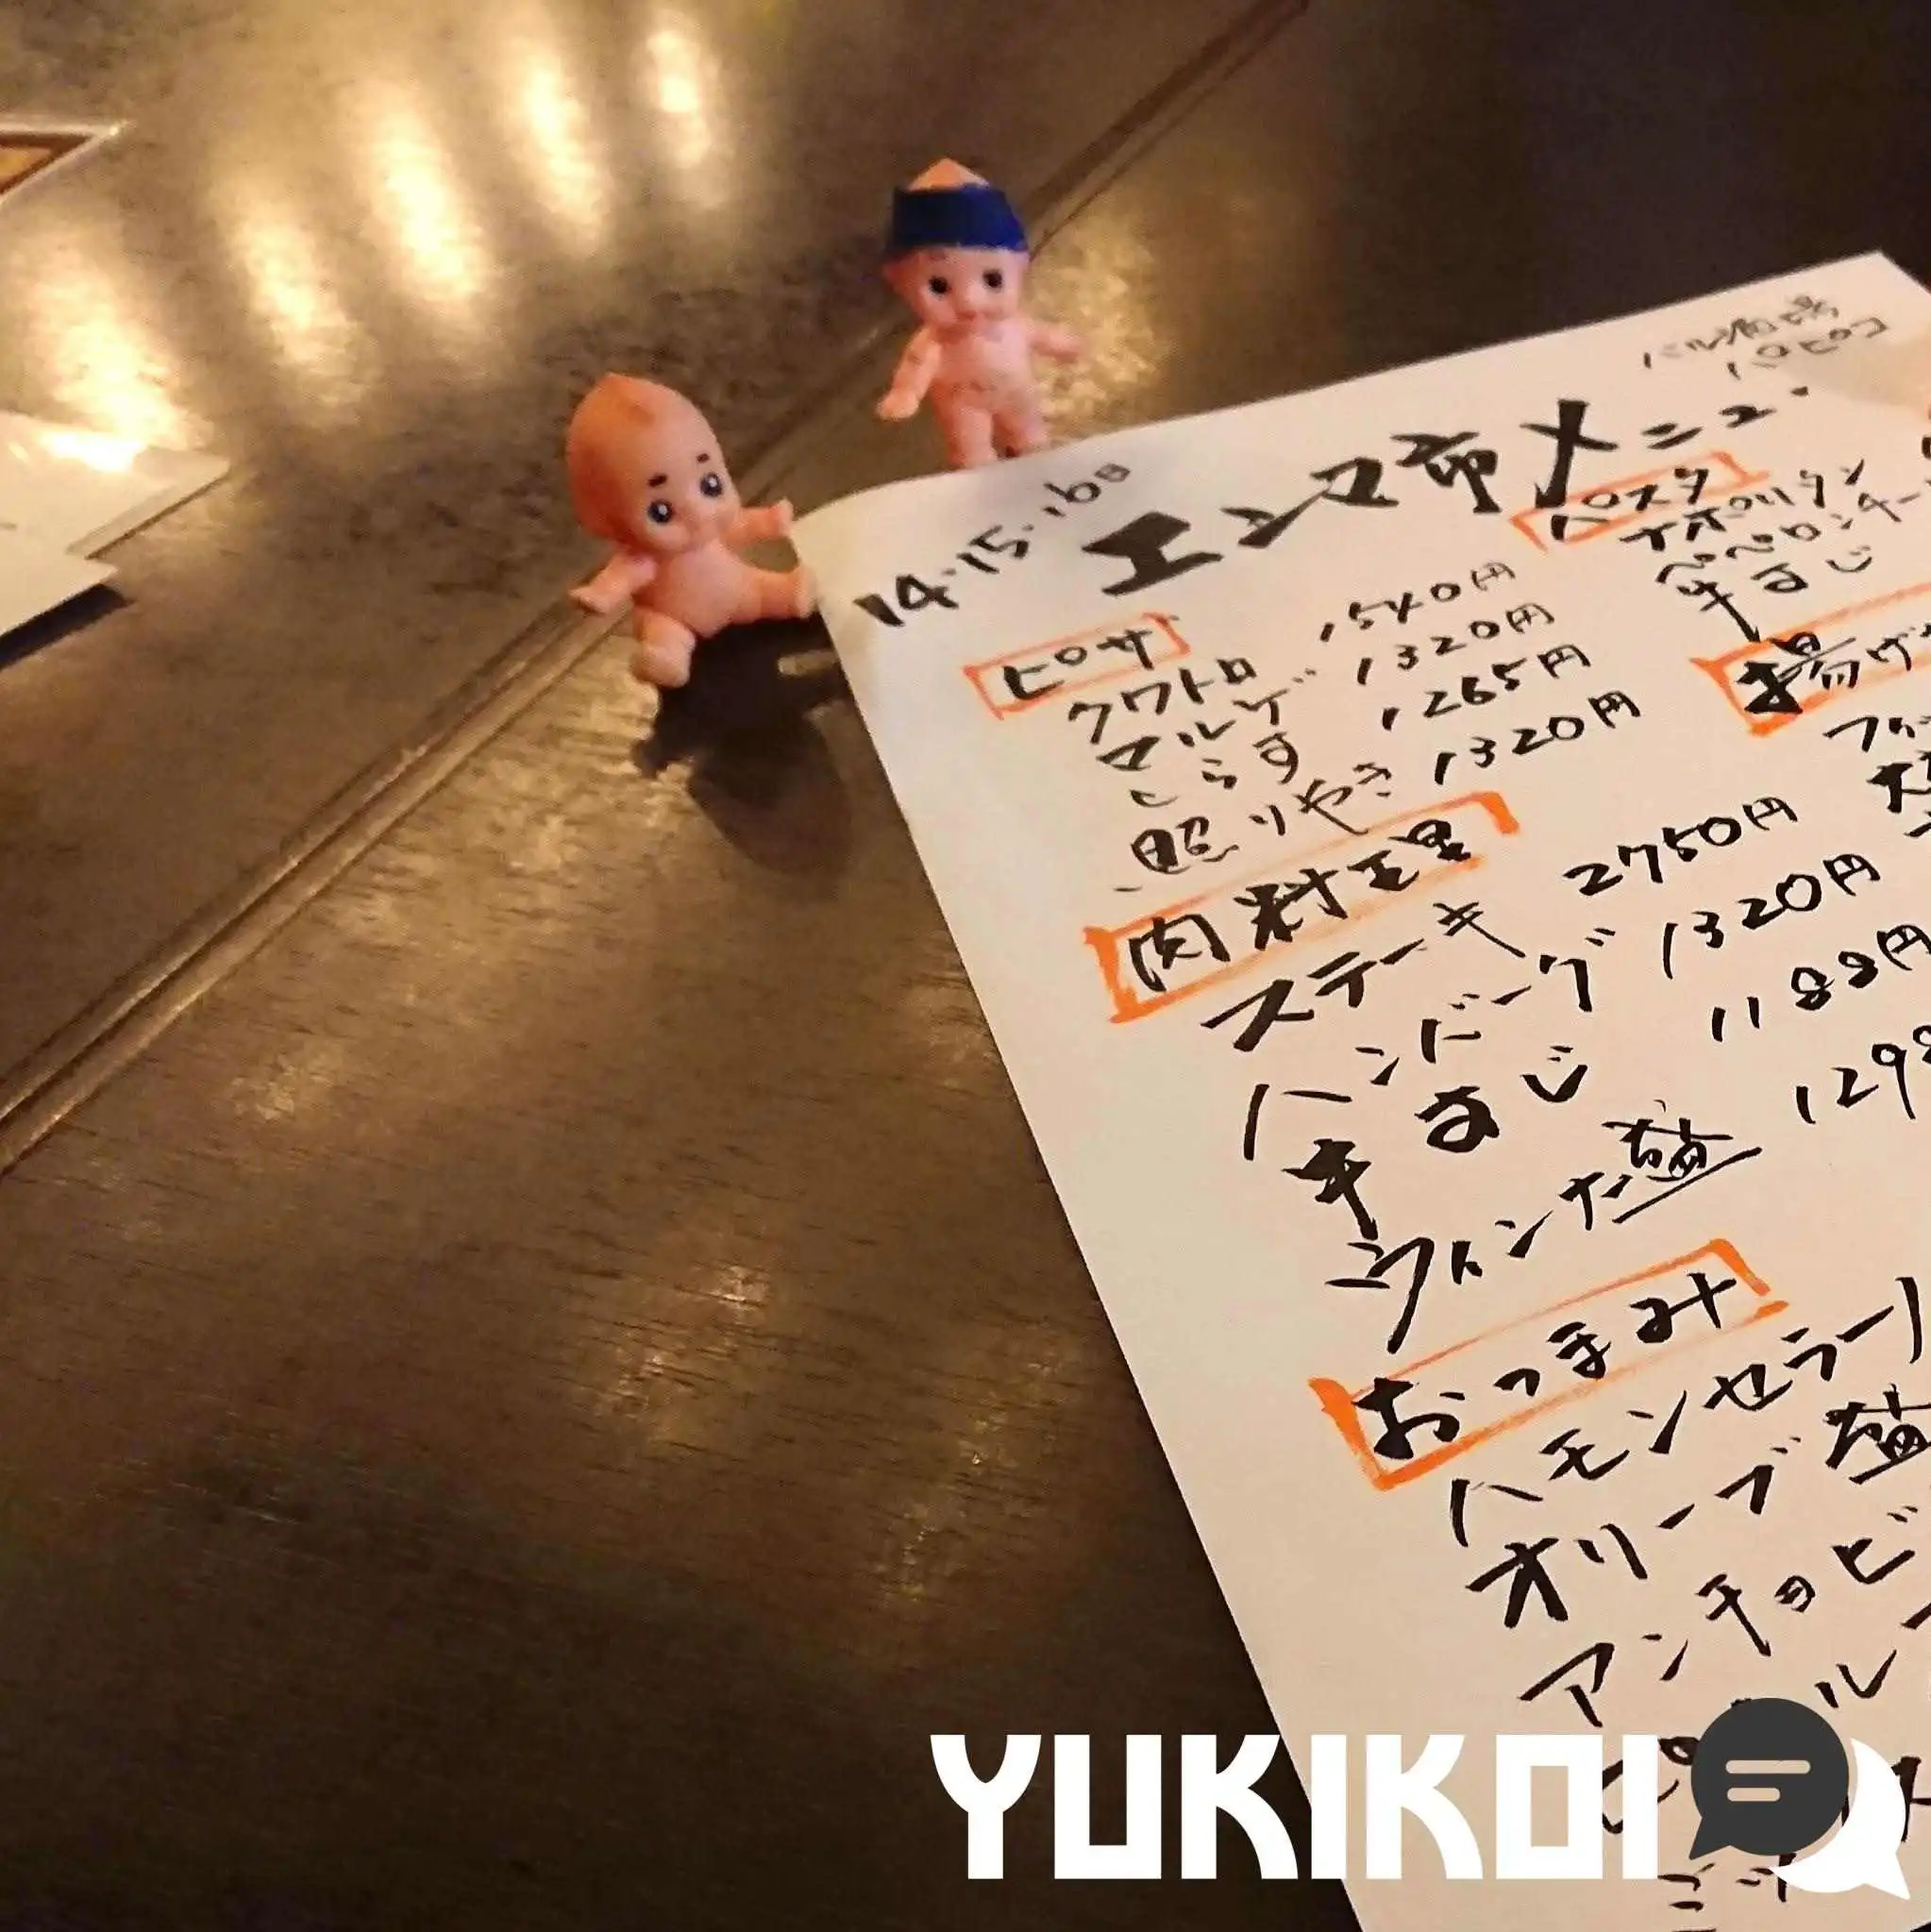 バル酒場
パピコ
14・15・16日
エンマ市メニュー
ピザ
クワトロ 1540円
マルゲ 1320円
しらす 1265円
照りやき 1320円
肉料理
ステーキ 2750円
ハンバーグ 1320円
牛すじ 1188円
ウインナ盛 129
おつまみ
ハモンセラー
オリーブ盛
アンチョビ
パスタ
ナポリタン
ペペロンチー
牛すじ
揚げ
YUKIKOI